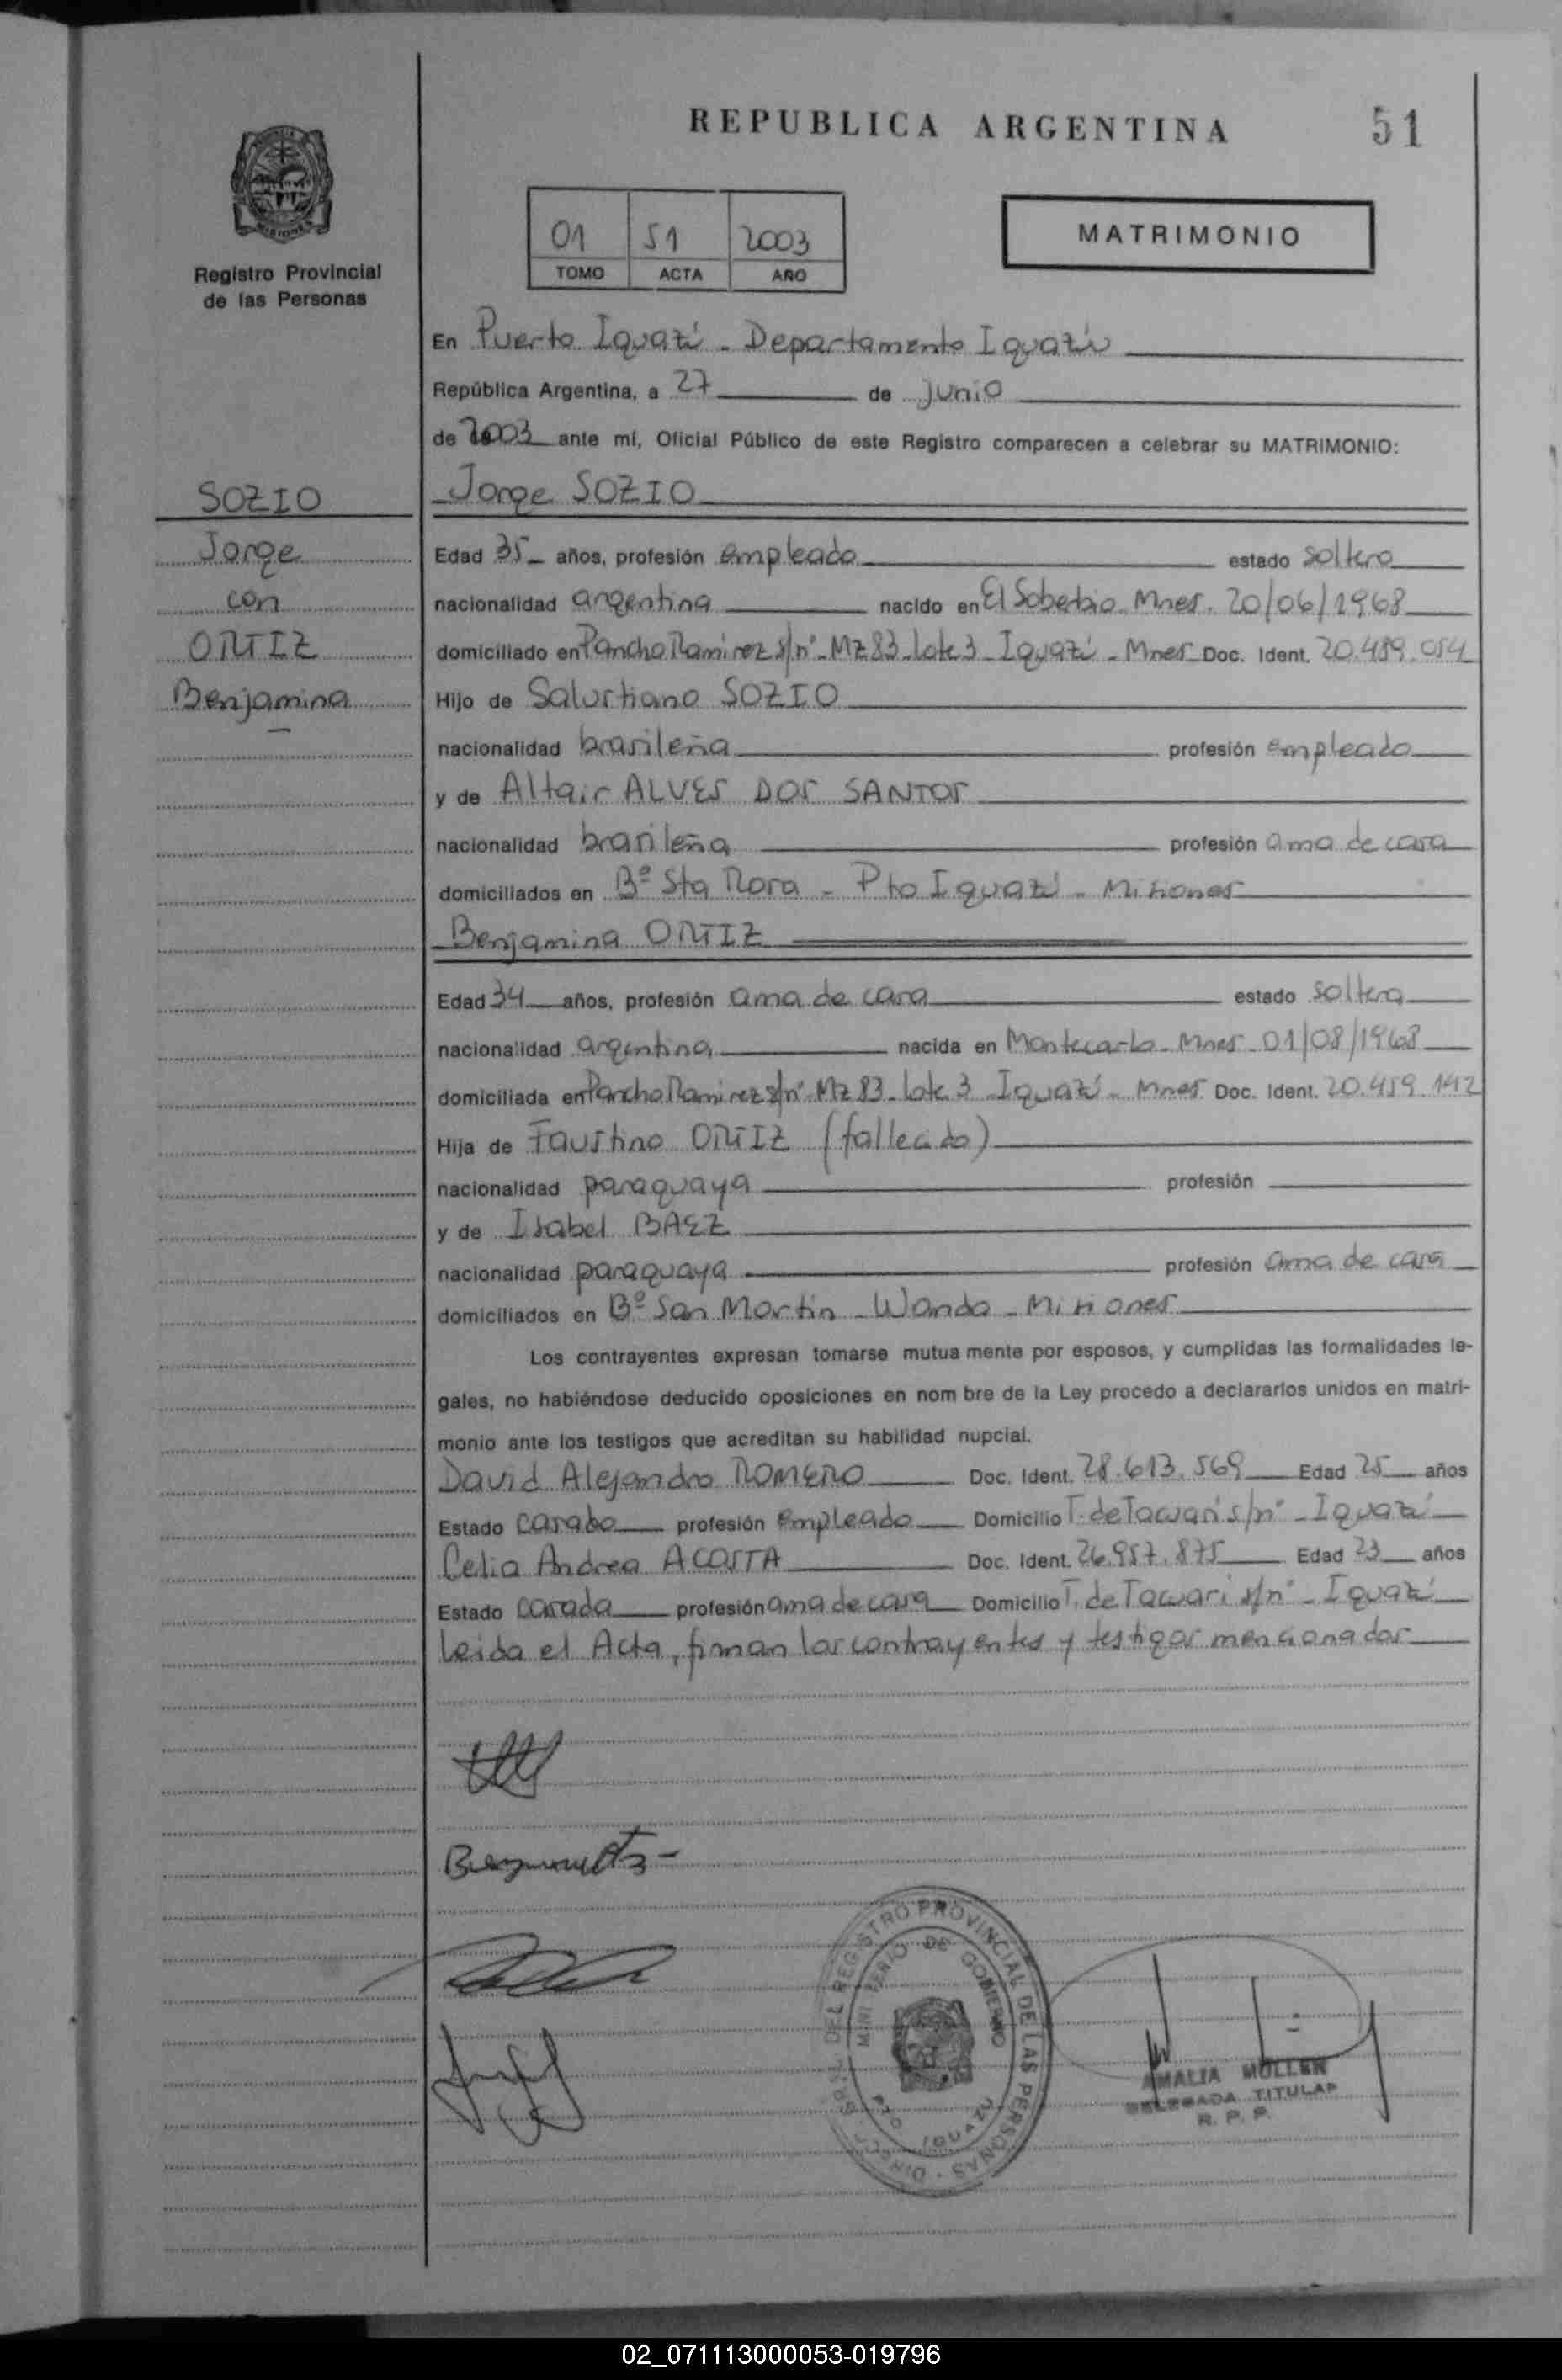 REPUBLICA ARGENTINA
51
MISIONES
Registro Provincial
de las Personas
01 51 2003
TOMO ACTA AÑO
MATRIMONIO
En Puerto Iguazú - Departamento Iguazú
República Argentina, a 27 de junio
de 2003 ante mí, Oficial Público de este Registro comparecen a celebrar su MATRIMONIO:
SOZIO
Jorge
con
ORTIZ
Benjamina
Jorge SOZIO
Edad 35 años, profesión empleado estado soltero
nacionalidad argentina nacido en El Soberbio Mnes. 20/06/1968
domiciliado en Pancho Ramirez s/n° - Mz 83 - Lote 3 - Iguazú - Mnes Doc. Ident. 20.489.054
Hijo de Salustiano SOZIO
nacionalidad brasileña profesión empleado
y de Altair ALVES DOS SANTOS
nacionalidad brasileña profesión ama de casa
domiciliados en B° Sta Rosa - Pto Iguazú - Misiones
Benjamina ORTIZ
Edad 34 años, profesión ama de casa estado soltera
nacionalidad argentina nacida en Montecarlo - Mnes - 01/08/1968
domiciliada en Pancho Ramirez s/n° - Mz 83 - Lote 3 - Iguazú - Mnes Doc. Ident. 20.459.142
Hija de Faustino ORTIZ (fallecido)
nacionalidad paraguaya profesión
y de Isabel BAEZ
nacionalidad paraguaya profesión ama de casa
domiciliados en B° San Martin - Wanda - Misiones
Los contrayentes expresan tomarse mutua mente por esposos, y cumplidas las formalidades le-
gales, no habiéndose deducido oposiciones en nom bre de la Ley procedo a declararlos unidos en matri-
monio ante los testigos que acreditan su habilidad nupcial.
David Alejandro ROMERO Doc. Ident. 28.613.569 Edad 25 años
Estado casado profesión empleado Domicilio T. de Tacuarí s/n° - Iguazú
Celia Andrea ACOSTA Doc. Ident. 26.957.875 Edad 23 años
Estado casada profesión ama de casa Domicilio T. de Tacuari s/n° - Iguazú
Leida el Acta, firman los contrayentes y testigos mencionados
DEL REGISTRO PROVINCIAL DE LAS PERSONAS
MINISTERIO DE GOBIERNO
PTO IGUAZU
AMALIA MULLER
DELEGADA TITULAR
R. P. P.
02_071113000053-019796